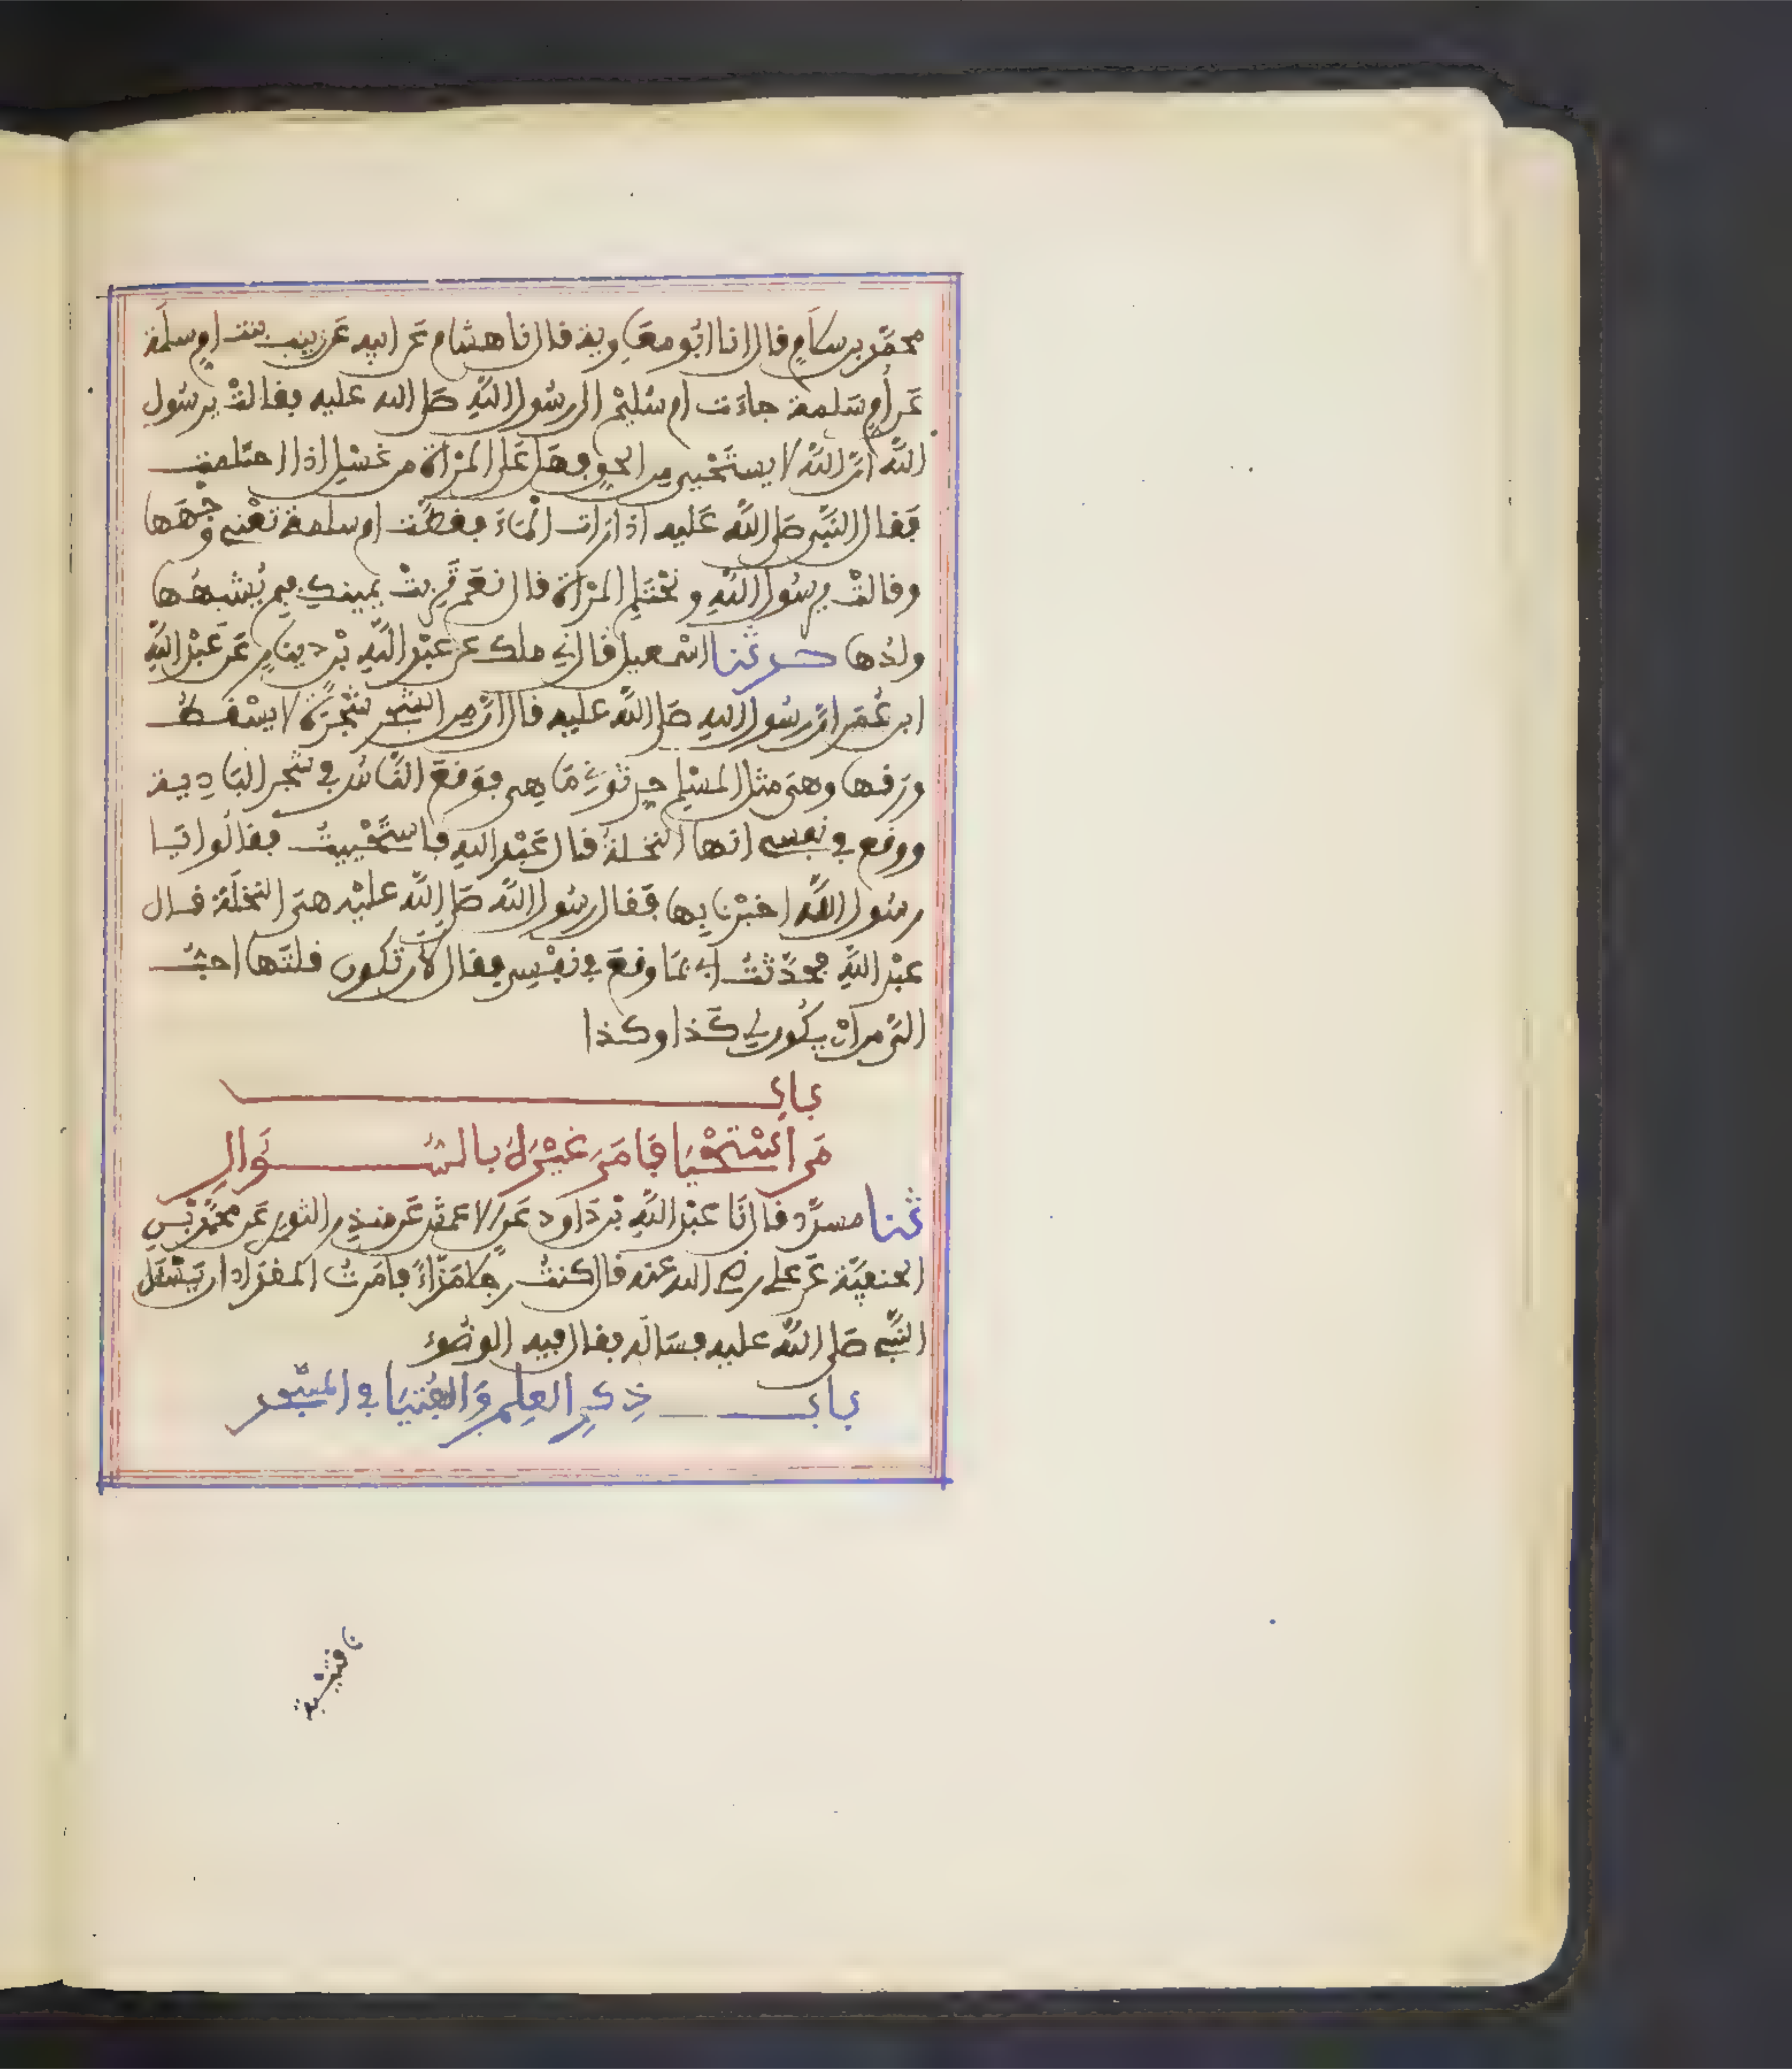 محمد بن سلام قال انا ابو معاوية قال نا هشام عن ابيه عن زينب بنت ام سلمة
عن ام سلمة جاءت ام سليم الى رسول الله صلى الله عليه فقالت يرسول
الله ان الله لا يستحيي من الحق فهل على المرأة من غسل اذا احتلمت
فقال النبي صلى الله عليه اذا رات الماء فغطت ام سلمة تعني وجهها
وقالت يرسول الله وتحتلم المرأة قال نعم تربت يمينك فبم يشبهها
ولدها حدثنا اسمعيل قال ني ملك عن عبد الله بن دينار عن عبد الله
ابن عمر ان رسول الله صلى الله عليه قال ان من الشجر شجرة لا يسقط
ورقها وهي مثل المسلم حدثوني ما هي فوقع الناس في شجر البادية
ووقع في نفسي انها النخلة قال عبد الله فاستحييت فقالوا يا
رسول الله اخبرنا بها فقال رسول الله صلى الله عليه هي النخلة قال
عبد الله فحدثت ابي بما وقع في نفسي فقال لان تكون قلتها احب
الي من ان يكون لي كذا وكذا
باب
من استحيا فامر غيره بالسؤال
ثنا مسدد قال نا عبد الله بن داود عن الاعمش عن منذر الثوري عن محمد بن
الحنفية عن علي رضي الله عنه قال كنت رجلا مذاء فامرت المقداد ان يسئل
النبي صلى الله عليه فساله فقال فيه الوضوء
باب ذكر العلم والفتيا في المسجد
نا قتيبة